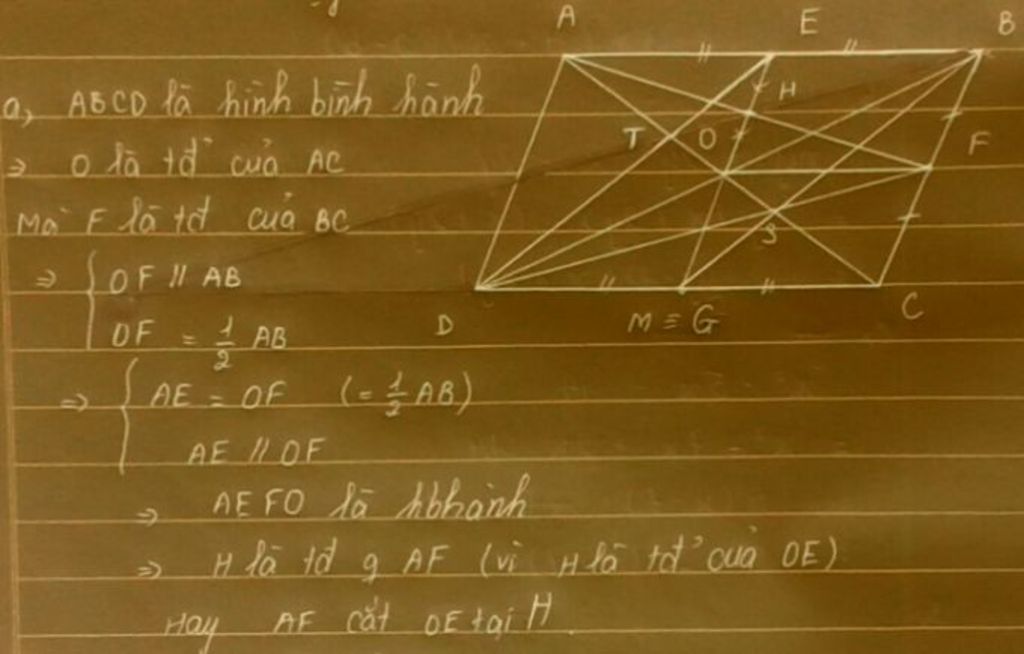 A E B
a, ABCD là hình bình hành
H
T O F
⇒ O là tđ của AC
Mà F là tđ của BC
S
⇒ { OF // AB
OF = 1/2 AB
D M ≡ G C
⇒ { AE = OF (= 1/2 AB)
AE // OF
⇒ AEFO là hbhành
⇒ H là tđ g AF (vì H là tđ của OE)
Hay AF cắt OE tại H.